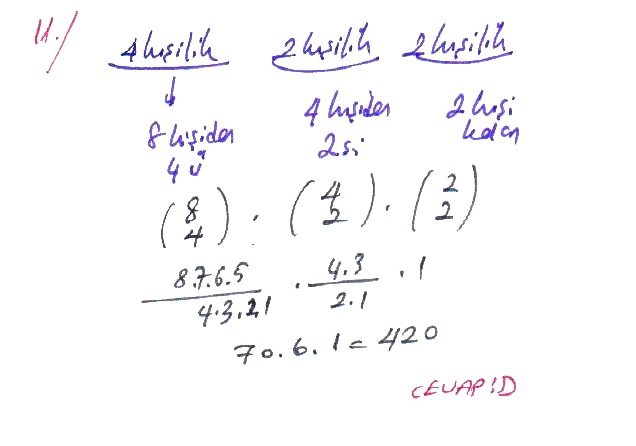 11./
4 kişilik 2 kişilik 2 kişilik
↓
8 kişiden 4 ü 4 kişiden 2 si 2 kişi kalan
(8 4) . (4 2) . (2 2)
8.7.6.5 / 4.3.2.1 . 4.3 / 2.1 . 1
70.6.1 = 420
CEVAP:D